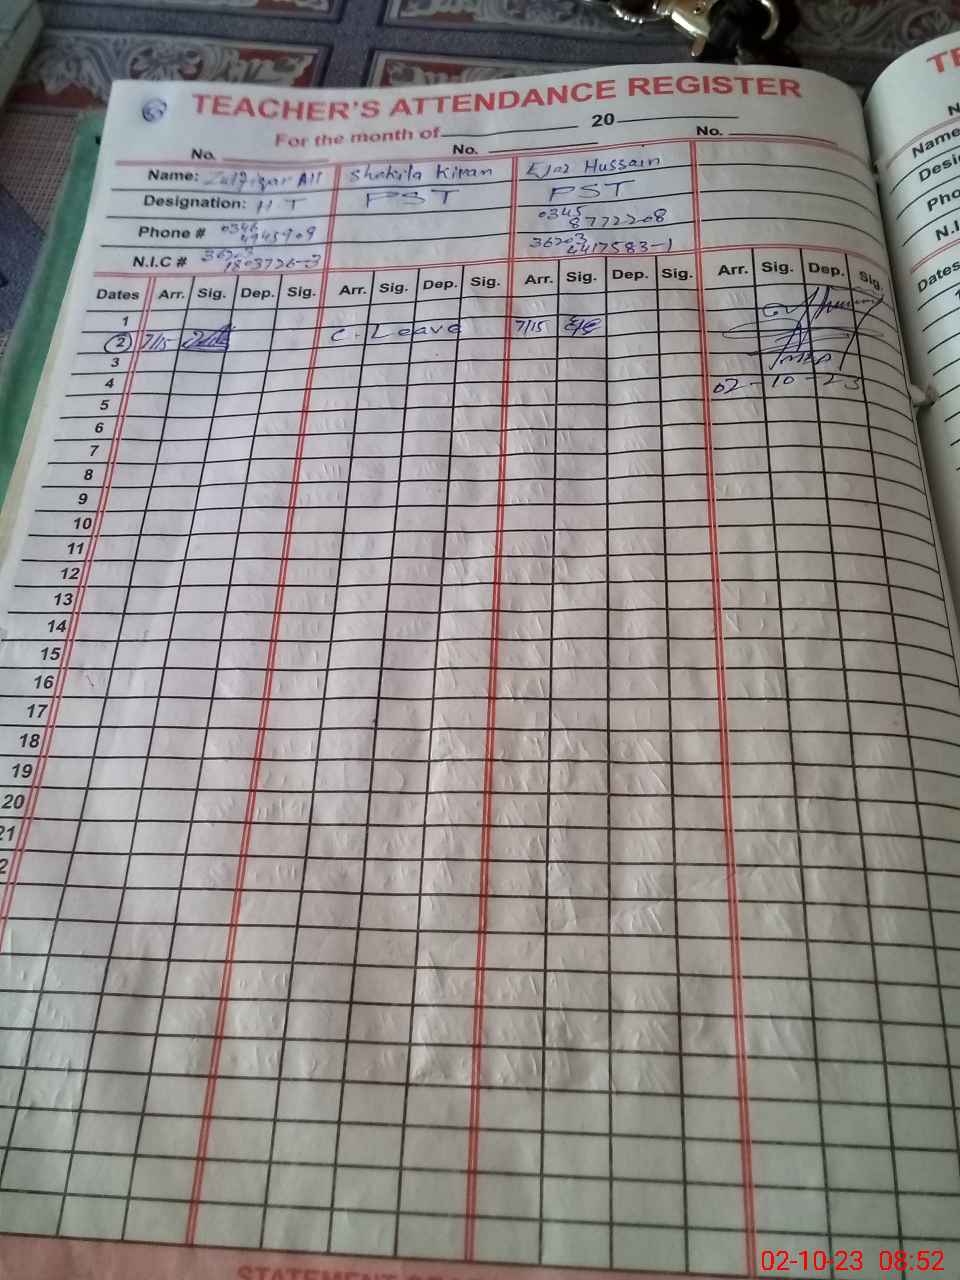 TEACHER'S ATTENDANCE REGISTER
For the month of 20
No. No. No.
Name: Zulfiqar Ali Shakila Kiran Ejaz Hussain
Designation: H T PST PST
Phone # 0346 4945909 0345 8772208
N.I.C # 36203 1803726-3 36203 4417583-1
Dates Arr. Sig. Dep. Sig. Arr. Sig. Dep. Sig. Arr. Sig. Dep. Sig. Arr. Sig. Dep. Sig.
1
2 7/15 C. Leave 7/15
3
4 02-10-23
5
6
7
8
9
10
11
12
13
14
15
16
17
18
19
20
21
2
Name
Dates
02-10-23 08:52